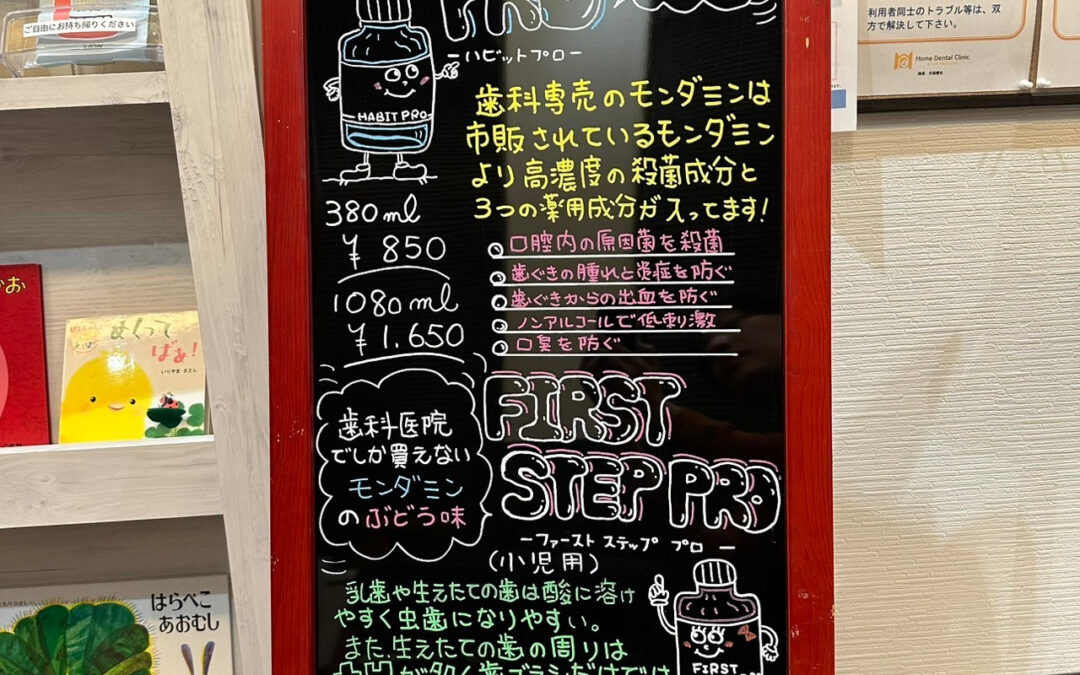 ご自由にお持ち帰りください
LION
利用者同士のトラブル等は、双
方で解決して下さい。
Home Dental Clinic
PRO
ーハビットプロー
HABIT PRO
歯科専売のモンダミンは
市販されているモンダミン
より高濃度の殺菌成分と
3つの薬用成分が入ってます!
380ml
¥850
1080ml
¥1.650
口腔内の原因菌を殺菌
歯ぐきの腫れと炎症を防ぐ
歯ぐきからの出血を防ぐ
ノンアルコールで低刺激
口臭を防ぐ
歯科医院
でしか買えない
モンダミン
のぶどう味
FIRST
STEP PRO
ーファースト ステップ プロー
(小児用)
乳歯や生えたての歯は酸に溶け
やすく虫歯になりやすい。
また、生えたての歯の周りは
凹凸が多く歯ブラシだけでは
FIRST
めくって
ばぁ!
いりやま さとし
はらぺこ
あおむし